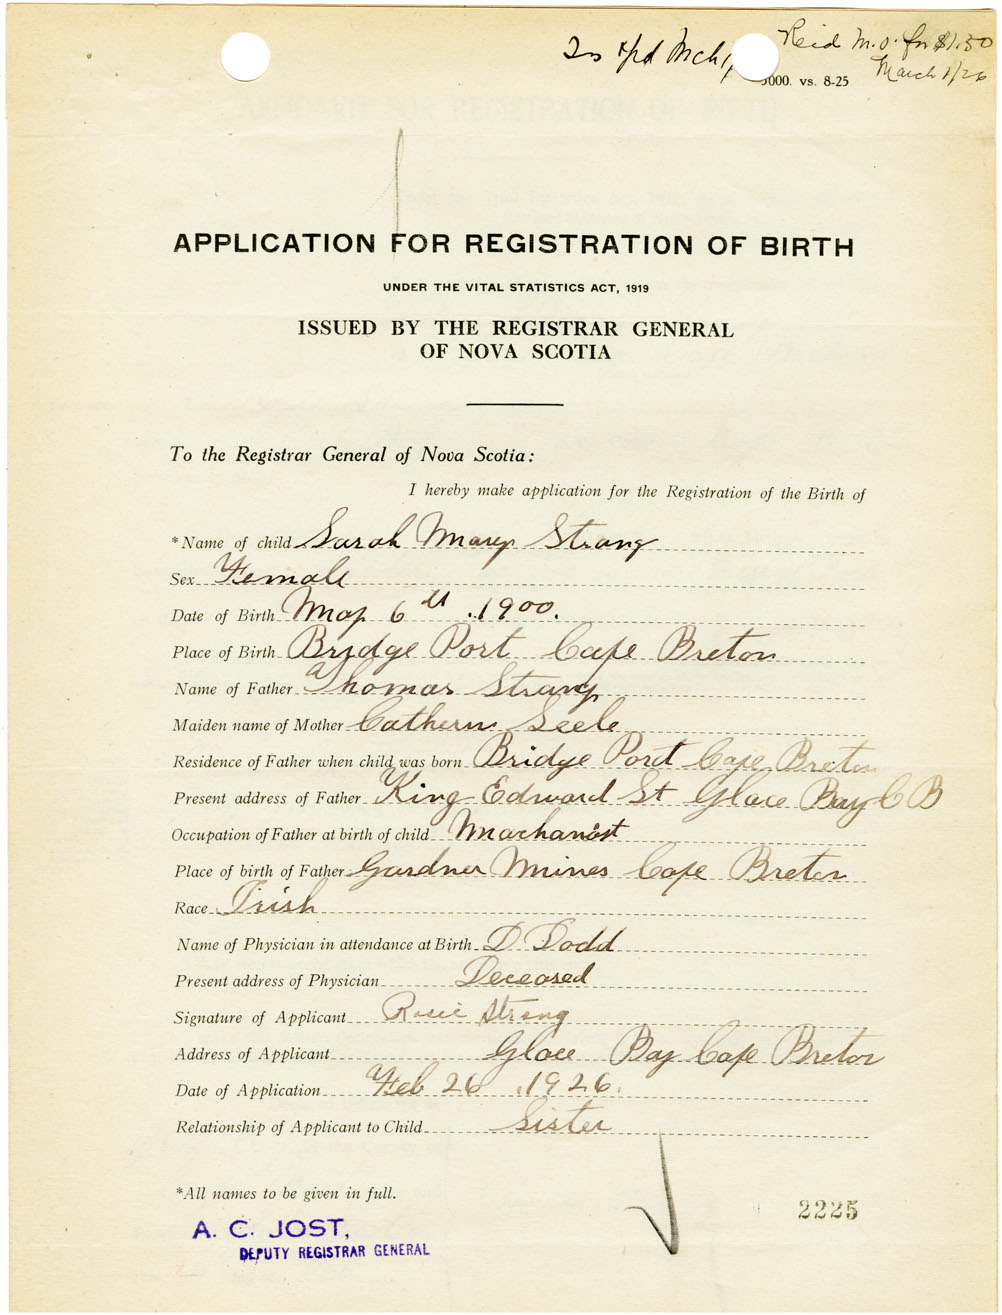 Reid M.O. for $1.50
March 1/26
000. vs. 8-25
APPLICATION FOR REGISTRATION OF BIRTH
UNDER THE VITAL STATISTICS ACT, 1919
ISSUED BY THE REGISTRAR GENERAL
OF NOVA SCOTIA
To the Registrar General of Nova Scotia:
I hereby make application for the Registration of the Birth of
*Name of child Sarah Mary Strang
Sex Female
Date of Birth May 6th 1900.
Place of Birth Bridge Port Cape Breton
Name of Father Thomas Strang
Maiden name of Mother Cathern Seele
Residence of Father when child was born Bridge Port Cape Breton
Present address of Father King Edward St Glace Bay C B
Occupation of Father at birth of child Machanist
Place of birth of Father Gardner Mines Cape Breton
Race Irish
Name of Physician in attendance at Birth D Dodd
Present address of Physician Deceased
Signature of Applicant Rosie Strang
Address of Applicant Glace Bay Cape Breton
Date of Application Feb 26 1926.
Relationship of Applicant to Child Sister
*All names to be given in full.
2225
A. C. JOST,
DEPUTY REGISTRAR GENERAL